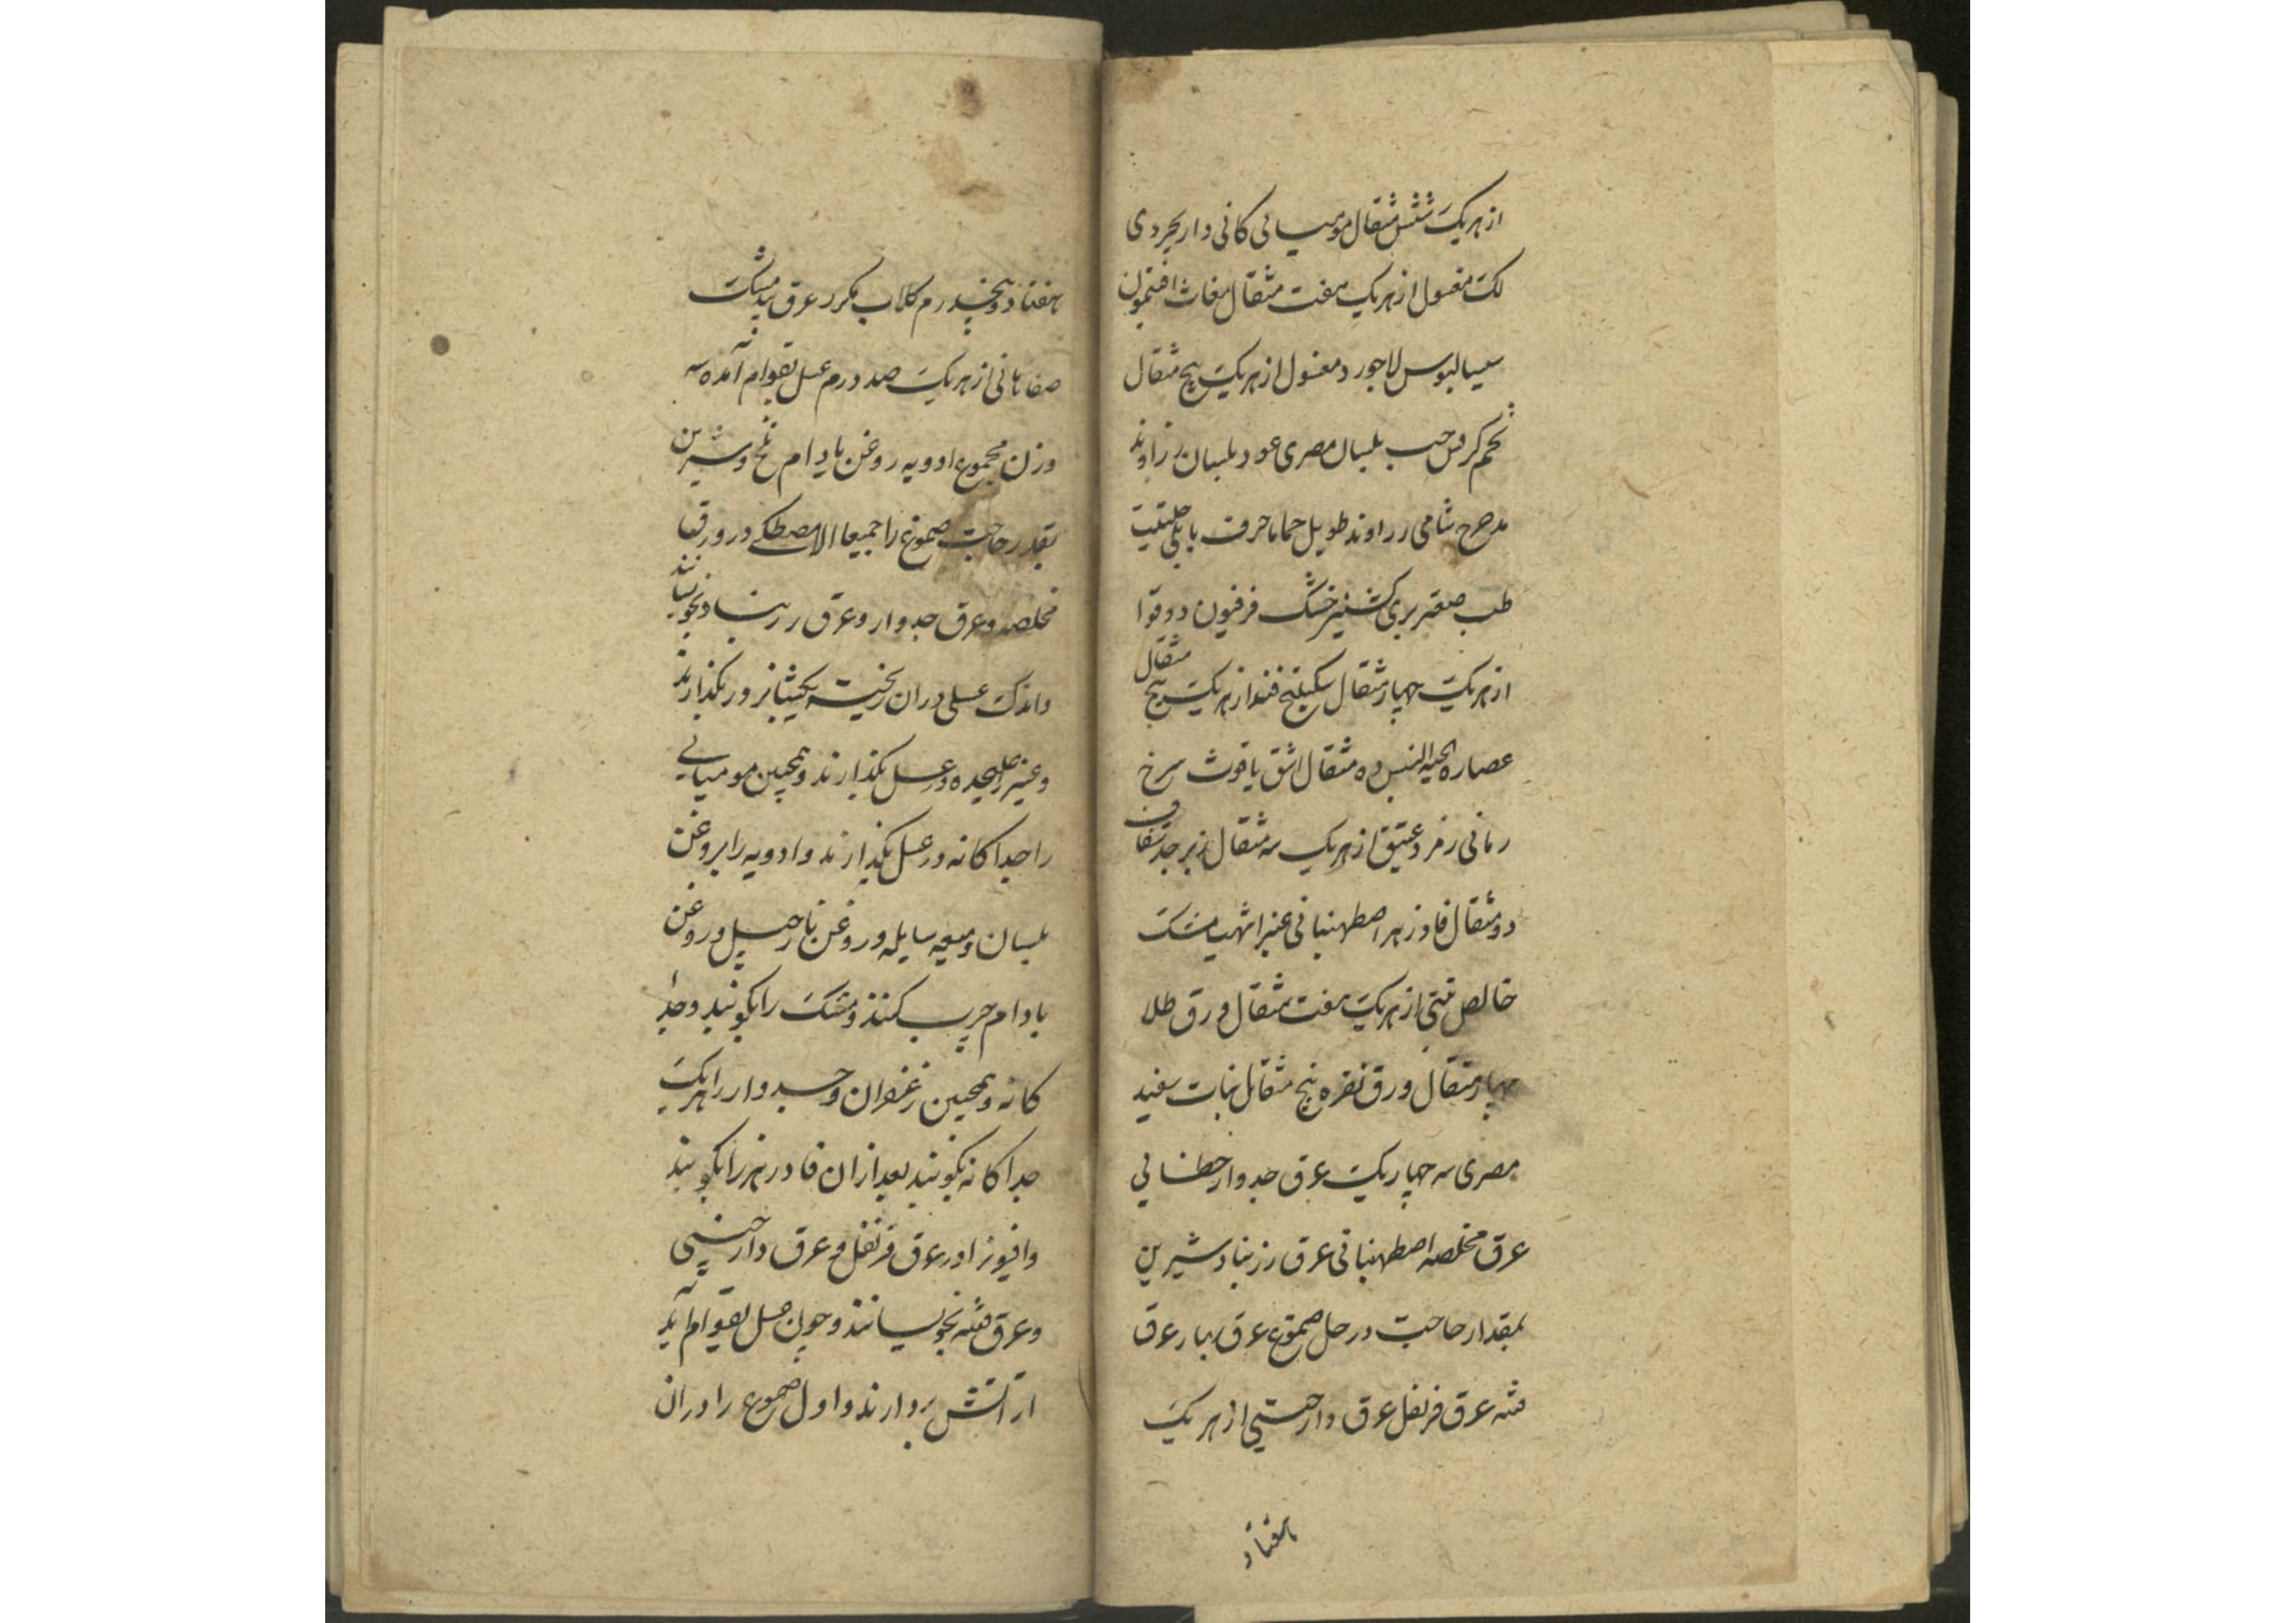 از هریک شش مثقال مومیائی کانی دارابجردی
لک مغسول از هریک هفت مثقال مغاث افتیمون
سیسالیوس لاجورد مغسول از هریک پنج مثقال
تخم کرفس حب بلسان مصری عود بلسان زراوند
مدحرج شامی زراوند طویل حماما حرف بابلی حلتیت
طیب صعتر بری کشنیز خشک فرفیون دوقوا
از هریک چهار مثقال سکبینج قنه از هریک پنج مثقال
عصاره لحیه التیس ده مثقال اشق یاقوت سرخ
رمانی زمرد عتیق از هریک سه مثقال زبرجد شفاف
دو مثقال فادزهر اصطهبانی عنبر اشهب مشک
خالص تبتی از هریک هفت مثقال ورق طلا
چهار مثقال ورق نقره پنج مثقال نبات سفید
مصری سه چهار یک عرق جدوار خطائی
عرق مخلصه اصطهبانی عرق زرنباد شیرین
بمقدار حاجت در حل صموغ عرق بهار عرق
فتنه عرق قرنفل عرق دارچینی از هریک
هفتاد
هفتاد و پنجدرم کلاب مکرر عرق بیدمشک
صفاهانی از هریک صد درم عسل بقوام آمده سه
وزن مجموع ادویه روغن بادام تلخ و شیرین
بقدر حاجت صموغ را جمیعا الا مصطکی در ورق
مخلصه و عرق جدوار و عرق زرنباد بخیسانند
و اندک عسلی دران ریخته یکشبانروز بگذارند
و عنبر را علیحده در عسل بگذارند و همچنین مومیائی
را جداکانه در عسل بگذارند و ادویه را بروغن
بلسان و میعه سایله و روغن نارجیل و روغن
بادام چرب کنند و مشک را بکوبند و جدا
کانه و همچنین زعفران و جدوار را هریک
جداکانه بکوبند بعد از ان فادزهر را بکوبند
و افیون را در عرق قرنفل و عرق دارچینی
و عرق فتنه بخیسانند و چون عسل بقوام آید
از آتش بردارند و اول صموغ را دران